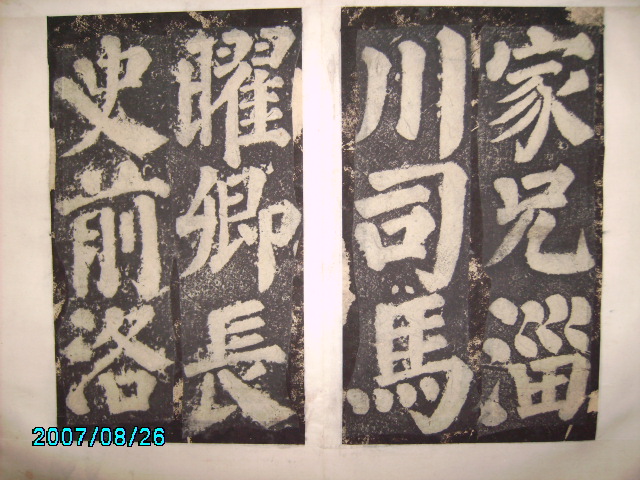 家兄淄
川司馬
曜卿長
史前洛
2007/08/26